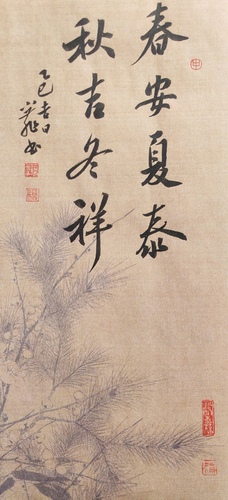 春安夏泰
秋吉冬祥
乙巳吉日